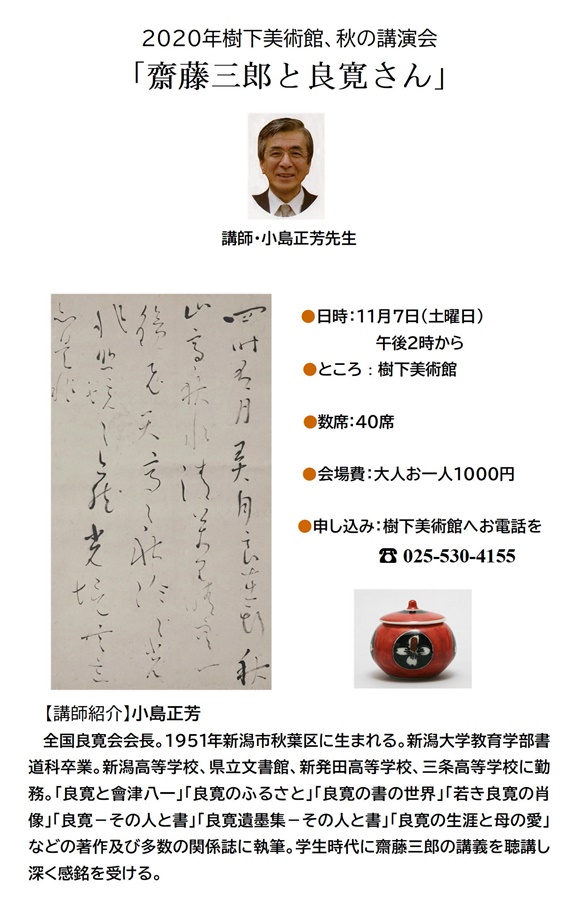 2020年樹下美術館、秋の講演会
「齋藤三郎と良寛さん」
講師・小島正芳先生
●日時：11月7日（土曜日）
午後2時から
●ところ：樹下美術館
●数席：40席
●会場費：大人お一人1000円
●申し込み：樹下美術館へお電話を
☎ 025-530-4155
【講師紹介】小島正芳
全国良寛会会長。1951年新潟市秋葉区に生まれる。新潟大学教育学部書
道科卒業。新潟高等学校、県立文書館、新発田高等学校、三条高等学校に勤
務。「良寛と會津八一」「良寛のふるさと」「良寛の書の世界」「若き良寛の肖
像」「良寛－その人と書」「良寛遺墨集－その人と書」「良寛の生涯と母の愛」
などの著作及び多数の関係誌に執筆。学生時代に齋藤三郎の講義を聴講し
深く感銘を受ける。